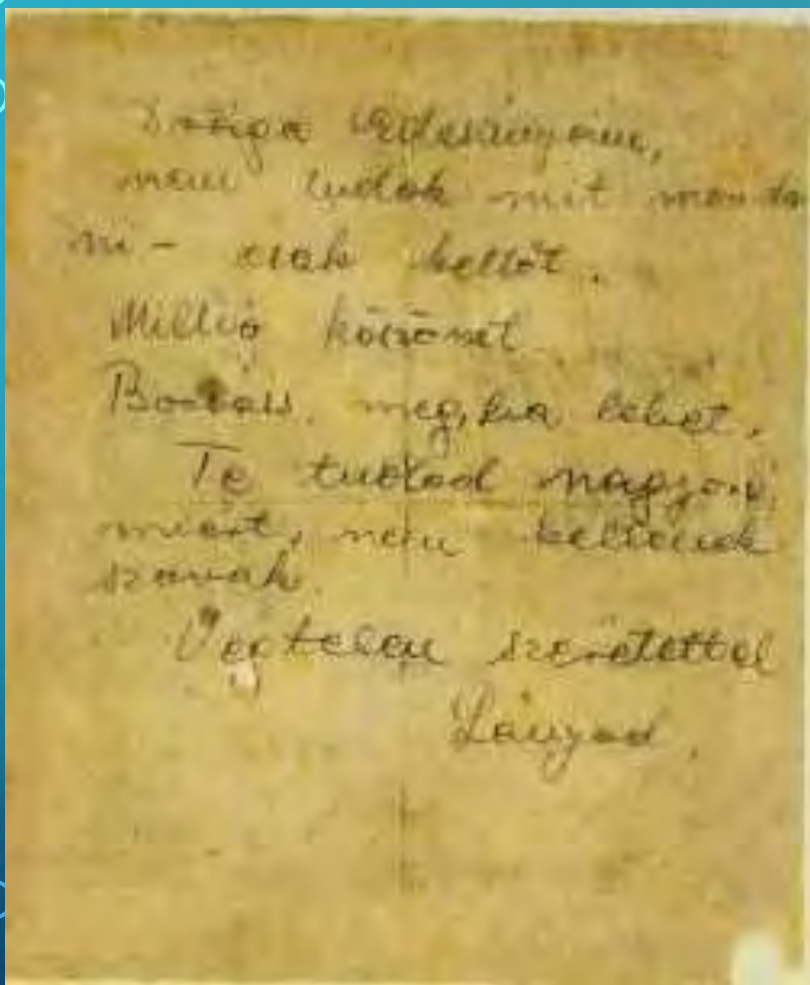 Drága Édesanyám,
nem tudok mit monda
ni - csak kettőt.
Millió köszönet.
Bocsáss meg, ha lehet.
Te tudod
miért, nem kellenek
szavak.
Végtelen szeretettel
Lányod.